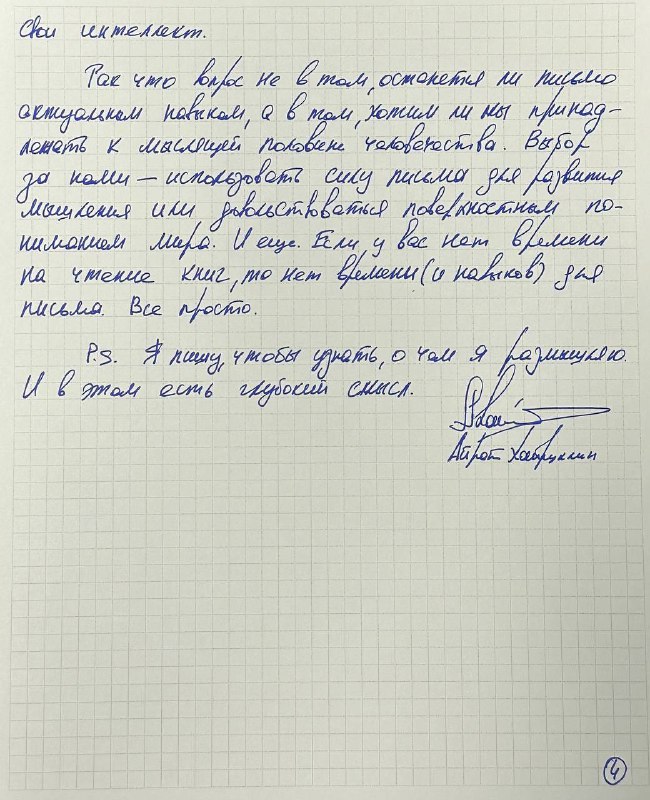 свой интеллект.
Так что вопрос не в том, останется ли письмо
актуальным навыком, а в том, хотим ли мы принад-
лежать к мыслящей половине человечества. Выбор
за нами — использовать силу письма для развития
мышления или довольствоваться поверхностным по-
ниманием мира. И еще. Если у вас нет времени
на чтение книг, то нет времени (и навыков) для
письма. Все просто.
P.S. Я пишу, чтобы узнать, о чем я размышляю.
И в этом есть глубокий смысл.
Айрат Хайруллин
4